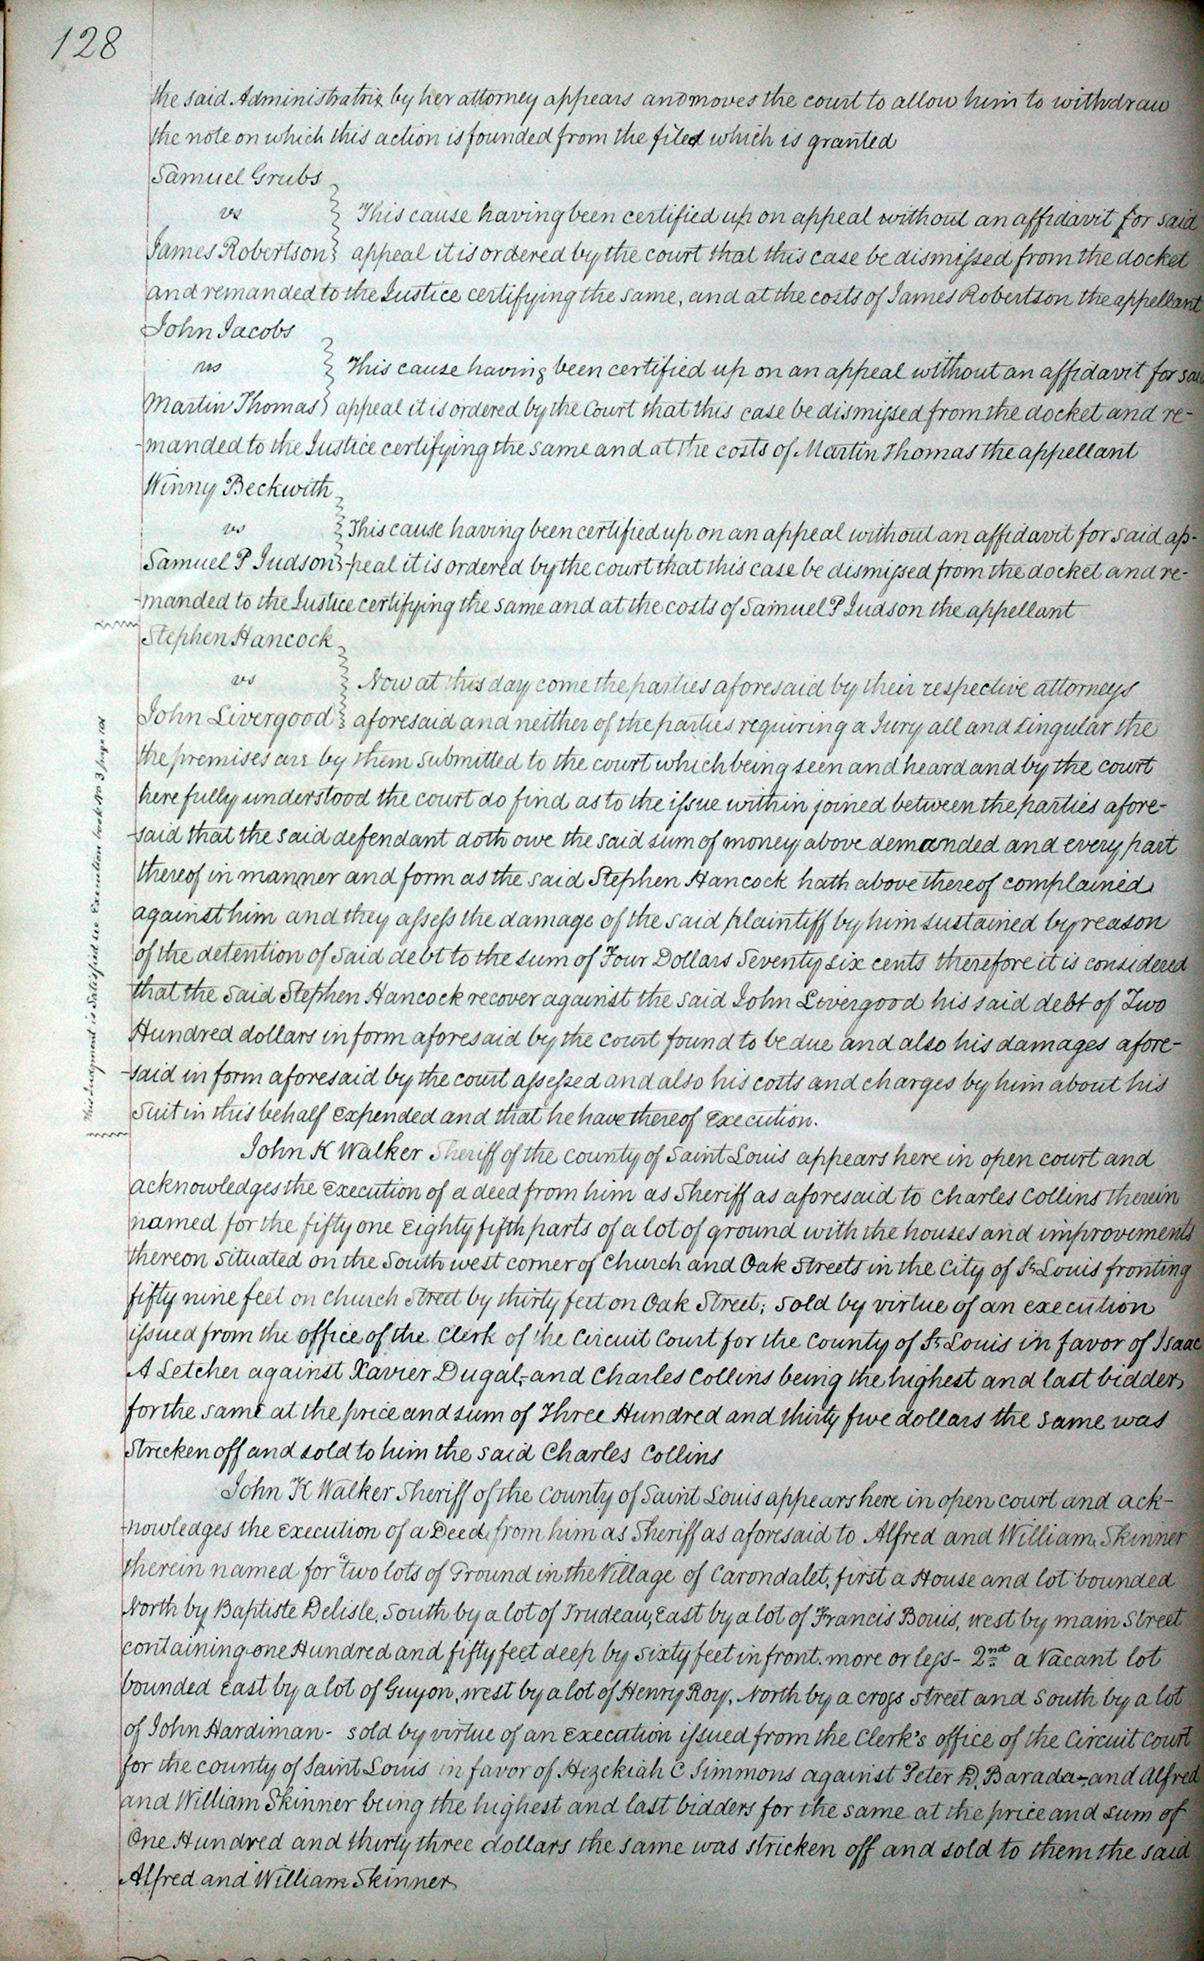 128
the said Administratrix by her attorney appears and moves the court to allow him to withdraw
the note on which this action is founded from the files which is granted
Samuel Grubs
vs
This cause having been certified up on appeal without an affidavit for said
James Robertson
appeal it is ordered by the court that this case be dismissed from the docket
and remanded to the Justice certifying the same, and at the costs of James Robertson the appellant
John Jacobs
vs
This cause having been certified up on an appeal without an affidavit for said
Martin Thomas
appeal it is ordered by the Court that this case be dismissed from the docket and re-
-manded to the Justice certifying the same and at the costs of Martin Thomas the appellant
Winny Beckwith
vs
This cause having been certified up on an appeal without an affidavit for said ap-
Samuel P Judson
-peal it is ordered by the court that this case be dismissed from the docket and re-
-manded to the Justice certifying the same and at the costs of Samuel P Judson the appellant
Stephen Hancock
vs
Now at this day come the parties aforesaid by their respective attorneys
John Livergood
aforesaid and neither of the parties requiring a Jury all and singular the
the premises are by them submitted to the court which being seen and heard and by the court
here fully understood the court do find as to the issue within joined between the parties afore-
-said that the said defendant doth owe the said sum of money above demanded and every part
thereof in manner and form as the said Stephen Hancock hath above thereof complained
against him and they assess the damage of the said plaintiff by him sustained by reason
of the detention of said debt to the sum of Four Dollars Seventy six cents therefore it is considered
that the said Stephen Hancock recover against the said John Livergood his said debt of Two
Hundred dollars in form aforesaid by the court found to be due and also his damages afore-
-said in form aforesaid by the court assessed and also his costs and charges by him about his
suit in this behalf expended and that he have thereof Execution.
This Judgment is Satisfied see Execution book No 3 page
John K Walker Sheriff of the county of Saint Louis appears here in open court and
acknowledges the execution of a deed from him as Sheriff as aforesaid to Charles Collins therein
named for the fifty one Eighty fifth parts of a lot of ground with the houses and improvements
thereon situated on the South west corner of Church and Oak Streets in the City of St Louis fronting
fifty nine feet on church Street by thirty feet on Oak Street; sold by virtue of an execution
issued from the office of the Clerk of the Circuit Court for the County of St Louis in favor of Isaac
A Letcher against Xavier Dugal, and Charles Collins being the highest and last bidder
for the same at the price and sum of Three Hundred and thirty five dollars the same was
stricken off and sold to him the said Charles Collins
John K Walker Sheriff of the County of Saint Louis appears here in open court and ack-
-nowledges the execution of a Deed from him as Sheriff as aforesaid to Alfred and William Skinner
therein named for two lots of Ground in the Village of Carondalet, first a House and lot bounded
North by Baptiste Delisle, South by a lot of Trudeau, East by a lot of Francis Bouis, west by main street
containing one Hundred and fifty feet deep by sixty feet in front. more or less - 2nd a Vacant lot
bounded East by a lot of Guyon, west by a lot of Henry Roy, North by a cross street and South by a lot
of John Hardiman - sold by virtue of an execution issued from the Clerk's office of the Circuit Court
for the county of Saint Louis in favor of Hezekiah C Simmons against Peter D, Barada, and Alfred
and William Skinner being the highest and last bidders for the same at the price and sum of
One Hundred and thirty three dollars the same was stricken off and sold to them the said
Alfred and William Skinner